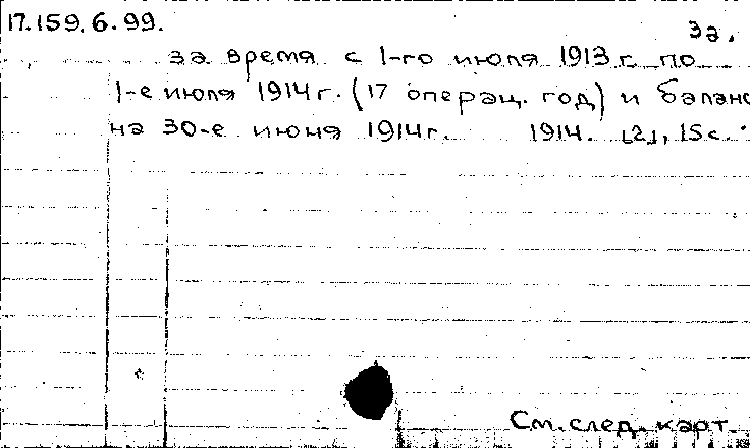 17.159.6.99.
за.
за время с 1-го июля 1913 г. по
1-е июля 1914 г. (17 операц. год) и баланс
на 30-е июня 1914 г. 1914. [2], 15 с.
См. след. карт.